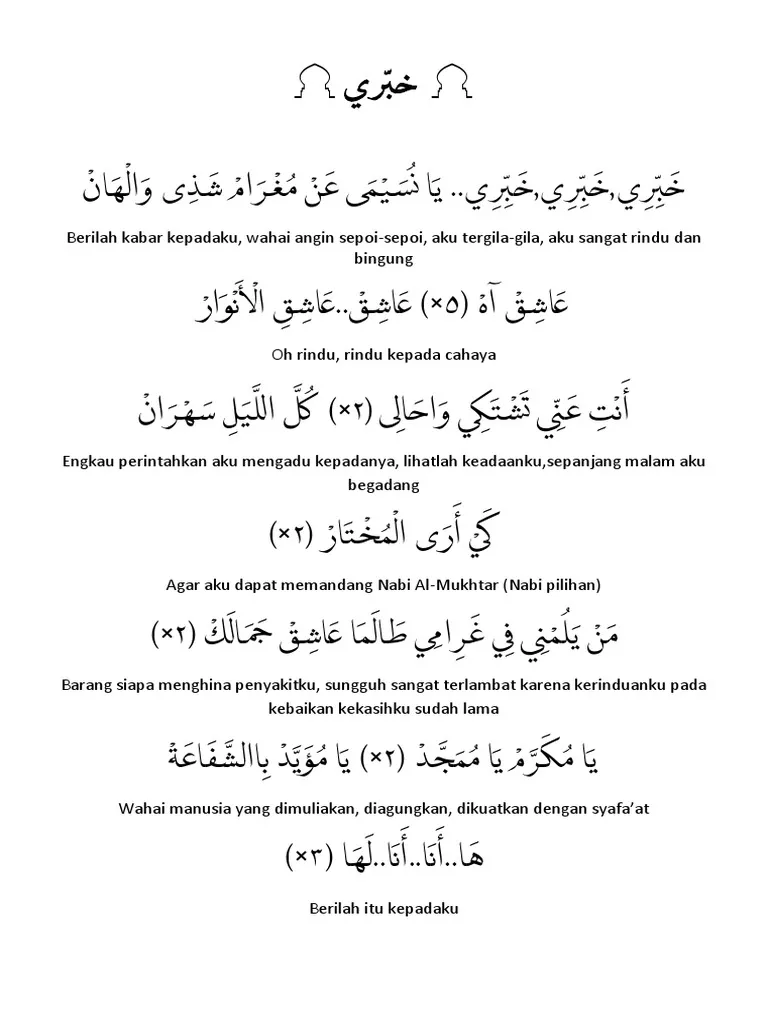 خبّري
خَبِّرِي,خَبِّرِي,خَبِّرِي.. يَا نُسَيْمَى عَنْ مُغْرَامْ شَذِى وَالْهَانْ
Berilah kabar kepadaku, wahai angin sepoi-sepoi, aku tergila-gila, aku sangat rindu dan
bingung
عَاشِقْ آهْ (×٥) عَاشِقْ..عَاشِقِ الْأَنْوَارْ
Oh rindu, rindu kepada cahaya
أَنْتِ عَنِّي تَشْتَكِي وَاحَالِى (×٢) كُلَّ اللَّيَلِ سَهْرَانْ
Engkau perintahkan aku mengadu kepadanya, lihatlah keadaanku,sepanjang malam aku
begadang
كَيْ أَرَى الْمُخْتَارْ (×٢)
Agar aku dapat memandang Nabi Al-Mukhtar (Nabi pilihan)
مَنْ يَلُمْنِي فِي غَرِامِي طَالَمَا عَاشِقْ جَمَالَكْ (×٢)
Barang siapa menghina penyakitku, sungguh sangat terlambat karena kerinduanku pada
kebaikan kekasihku sudah lama
يَا مُكَرَّمْ يَا مُمَجَّدْ (×٢) يَا مُؤَيَّدْ بِاالشَّفَاعَةْ
Wahai manusia yang dimuliakan, diagungkan, dikuatkan dengan syafa’at
هَا..أَنَا..أَنَا..لَهَا (×٣)
Berilah itu kepadaku